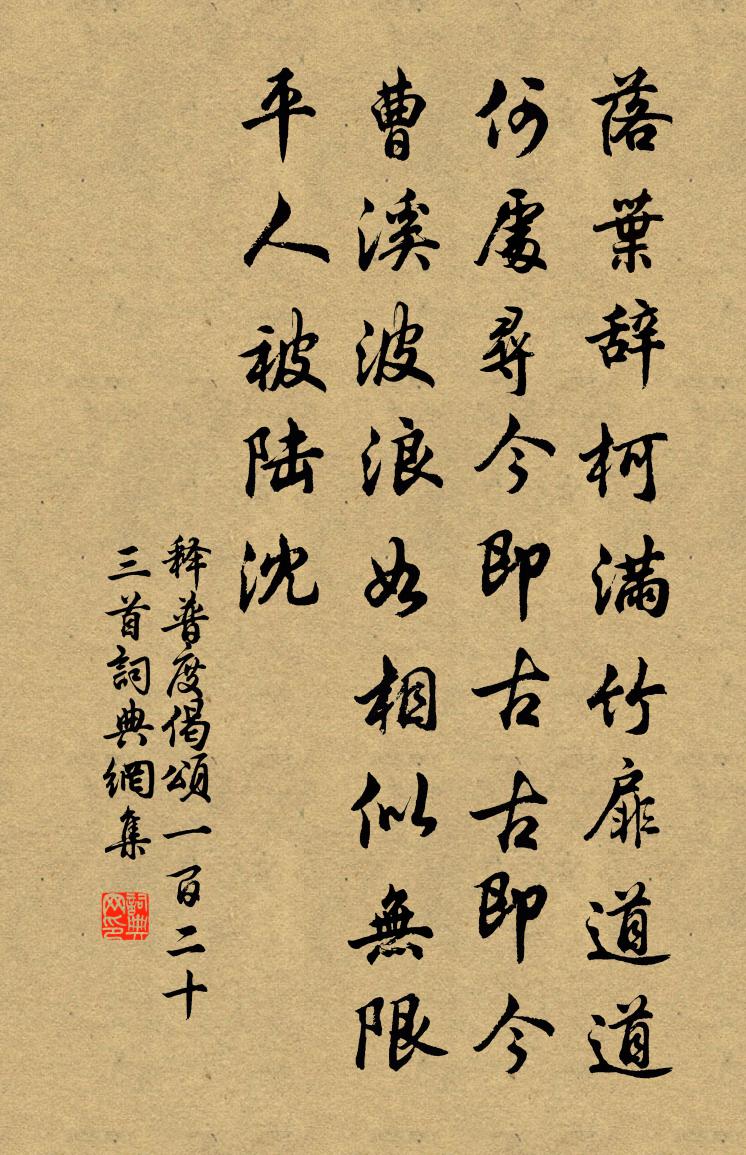 落葉辞柯滿竹扉道道
何處尋今即古古即今
曹溪波浪如相似無限
平人被陆沈
释普度偈頌一百二十
三首詞典網集
詞典网印